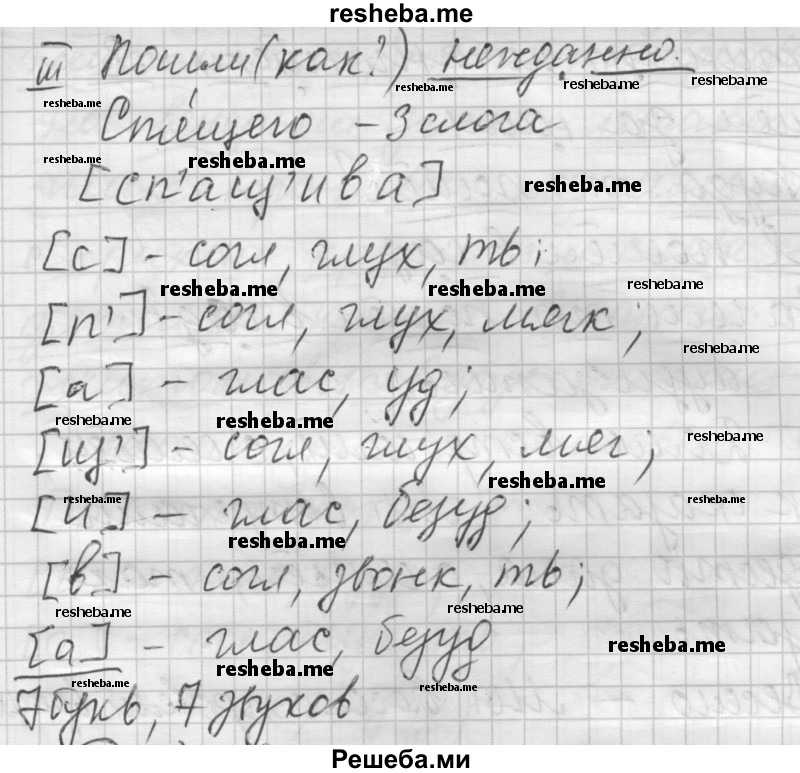 resheba.me
III Пошли (как?) нежданно.
resheba.me resheba.me resheba.me resheba.me
Спящего – 3 слога
resheba.me resheba.me
[сп'ащ'ива] resheba.me
[с] - согл, глух, тв;
resheba.me resheba.me resheba.me
[п'] - согл, глух, мягк;
resheba.me
[а] – глас, уд;
resheba.me resheba.me
[щ'] - согл, глух, мяг; resheba.me
resheba.me
[и] – глас, безуд;
resheba.me resheba.me
resheba.me
[в] – согл, звонк, тв;
resheba.me resheba.me
[а] – глас, безуд resheba.me
resheba.me resheba.me resheba.me
7 букв, 7 звуков
Решеба.ми